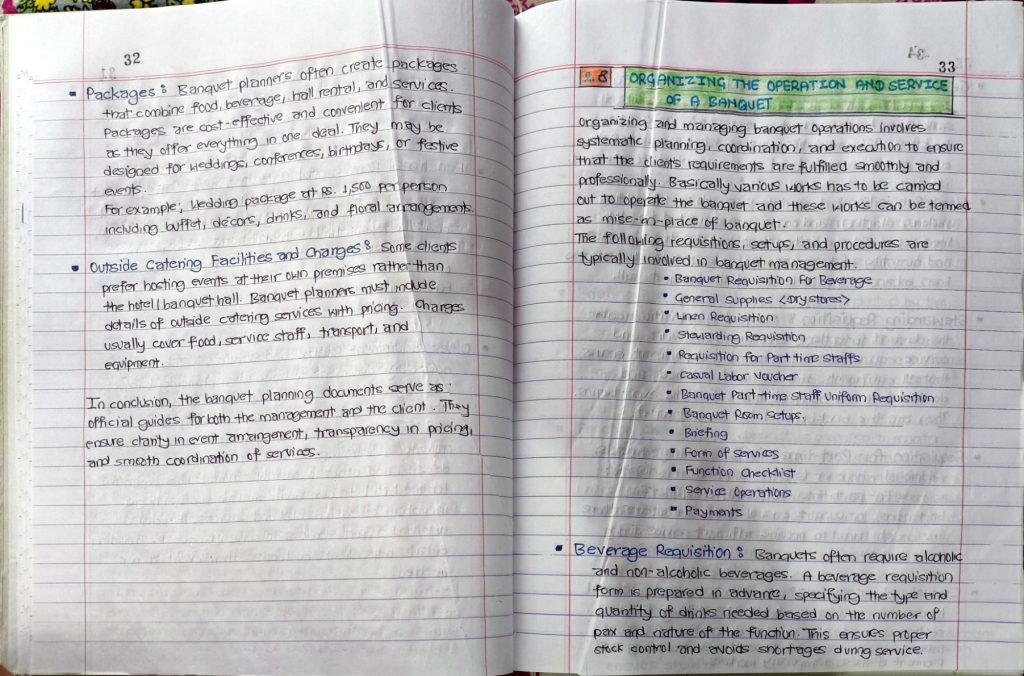 32
• Packages : Banquet planners often create packages
that combine food, beverage, hall rental, and services.
Packages are cost-effective and convenient for clients
as they offer everything in one deal. They may be
designed for weddings, conferences, birthdays, or festive
events.
For example; Wedding package at Rs. 1,500 per person
including buffet, décors, drinks, and floral arrangements.
• Outside Catering Facilities and Charges : Some clients
prefer hosting events at their own premises rather than
the hotel / banquet hall. Banquet planners must include
details of outside catering services with pricing. Charges
usually cover food, service staff, transport, and
equipment.
In conclusion, the banquet planning documents serve as
official guides for both the management and the client. They
ensure clarity in event arrangement, transparency in pricing,
and smooth coordination of services.
33
2.8 ORGANIZING THE OPERATION AND SERVICE
OF A BANQUET
Organizing and managing banquet operations involves
systematic planning, coordination, and execution to ensure
that the clients requirements are fulfilled smoothly and
professionally. Basically various works has to be carried
out to operate the banquet and these works can be termed
as mise-en-place of banquet.
The following requisitions, setups, and procedures are
typically involved in banquet management.
• Banquet Requisition For Beverage
• General Supplies <Dry stores>
• Linen Requisition
• Stewarding Requisition
• Requisition for Part time staffs
• Casual Labor Voucher
• Banquet Part-time Staff Uniform Requisition
• Banquet Room Setups.
• Briefing
• Form of services
• Function Checklist
• Service Operations
• Payments
• Beverage Requisition : Banquets often require alcoholic
and non-alcoholic beverages. A beverage requisition
form is prepared in advance, specifying the type and
quantity of drinks needed based on the number of
pax and nature of the function. This ensures proper
stock control and avoids shortages during service.